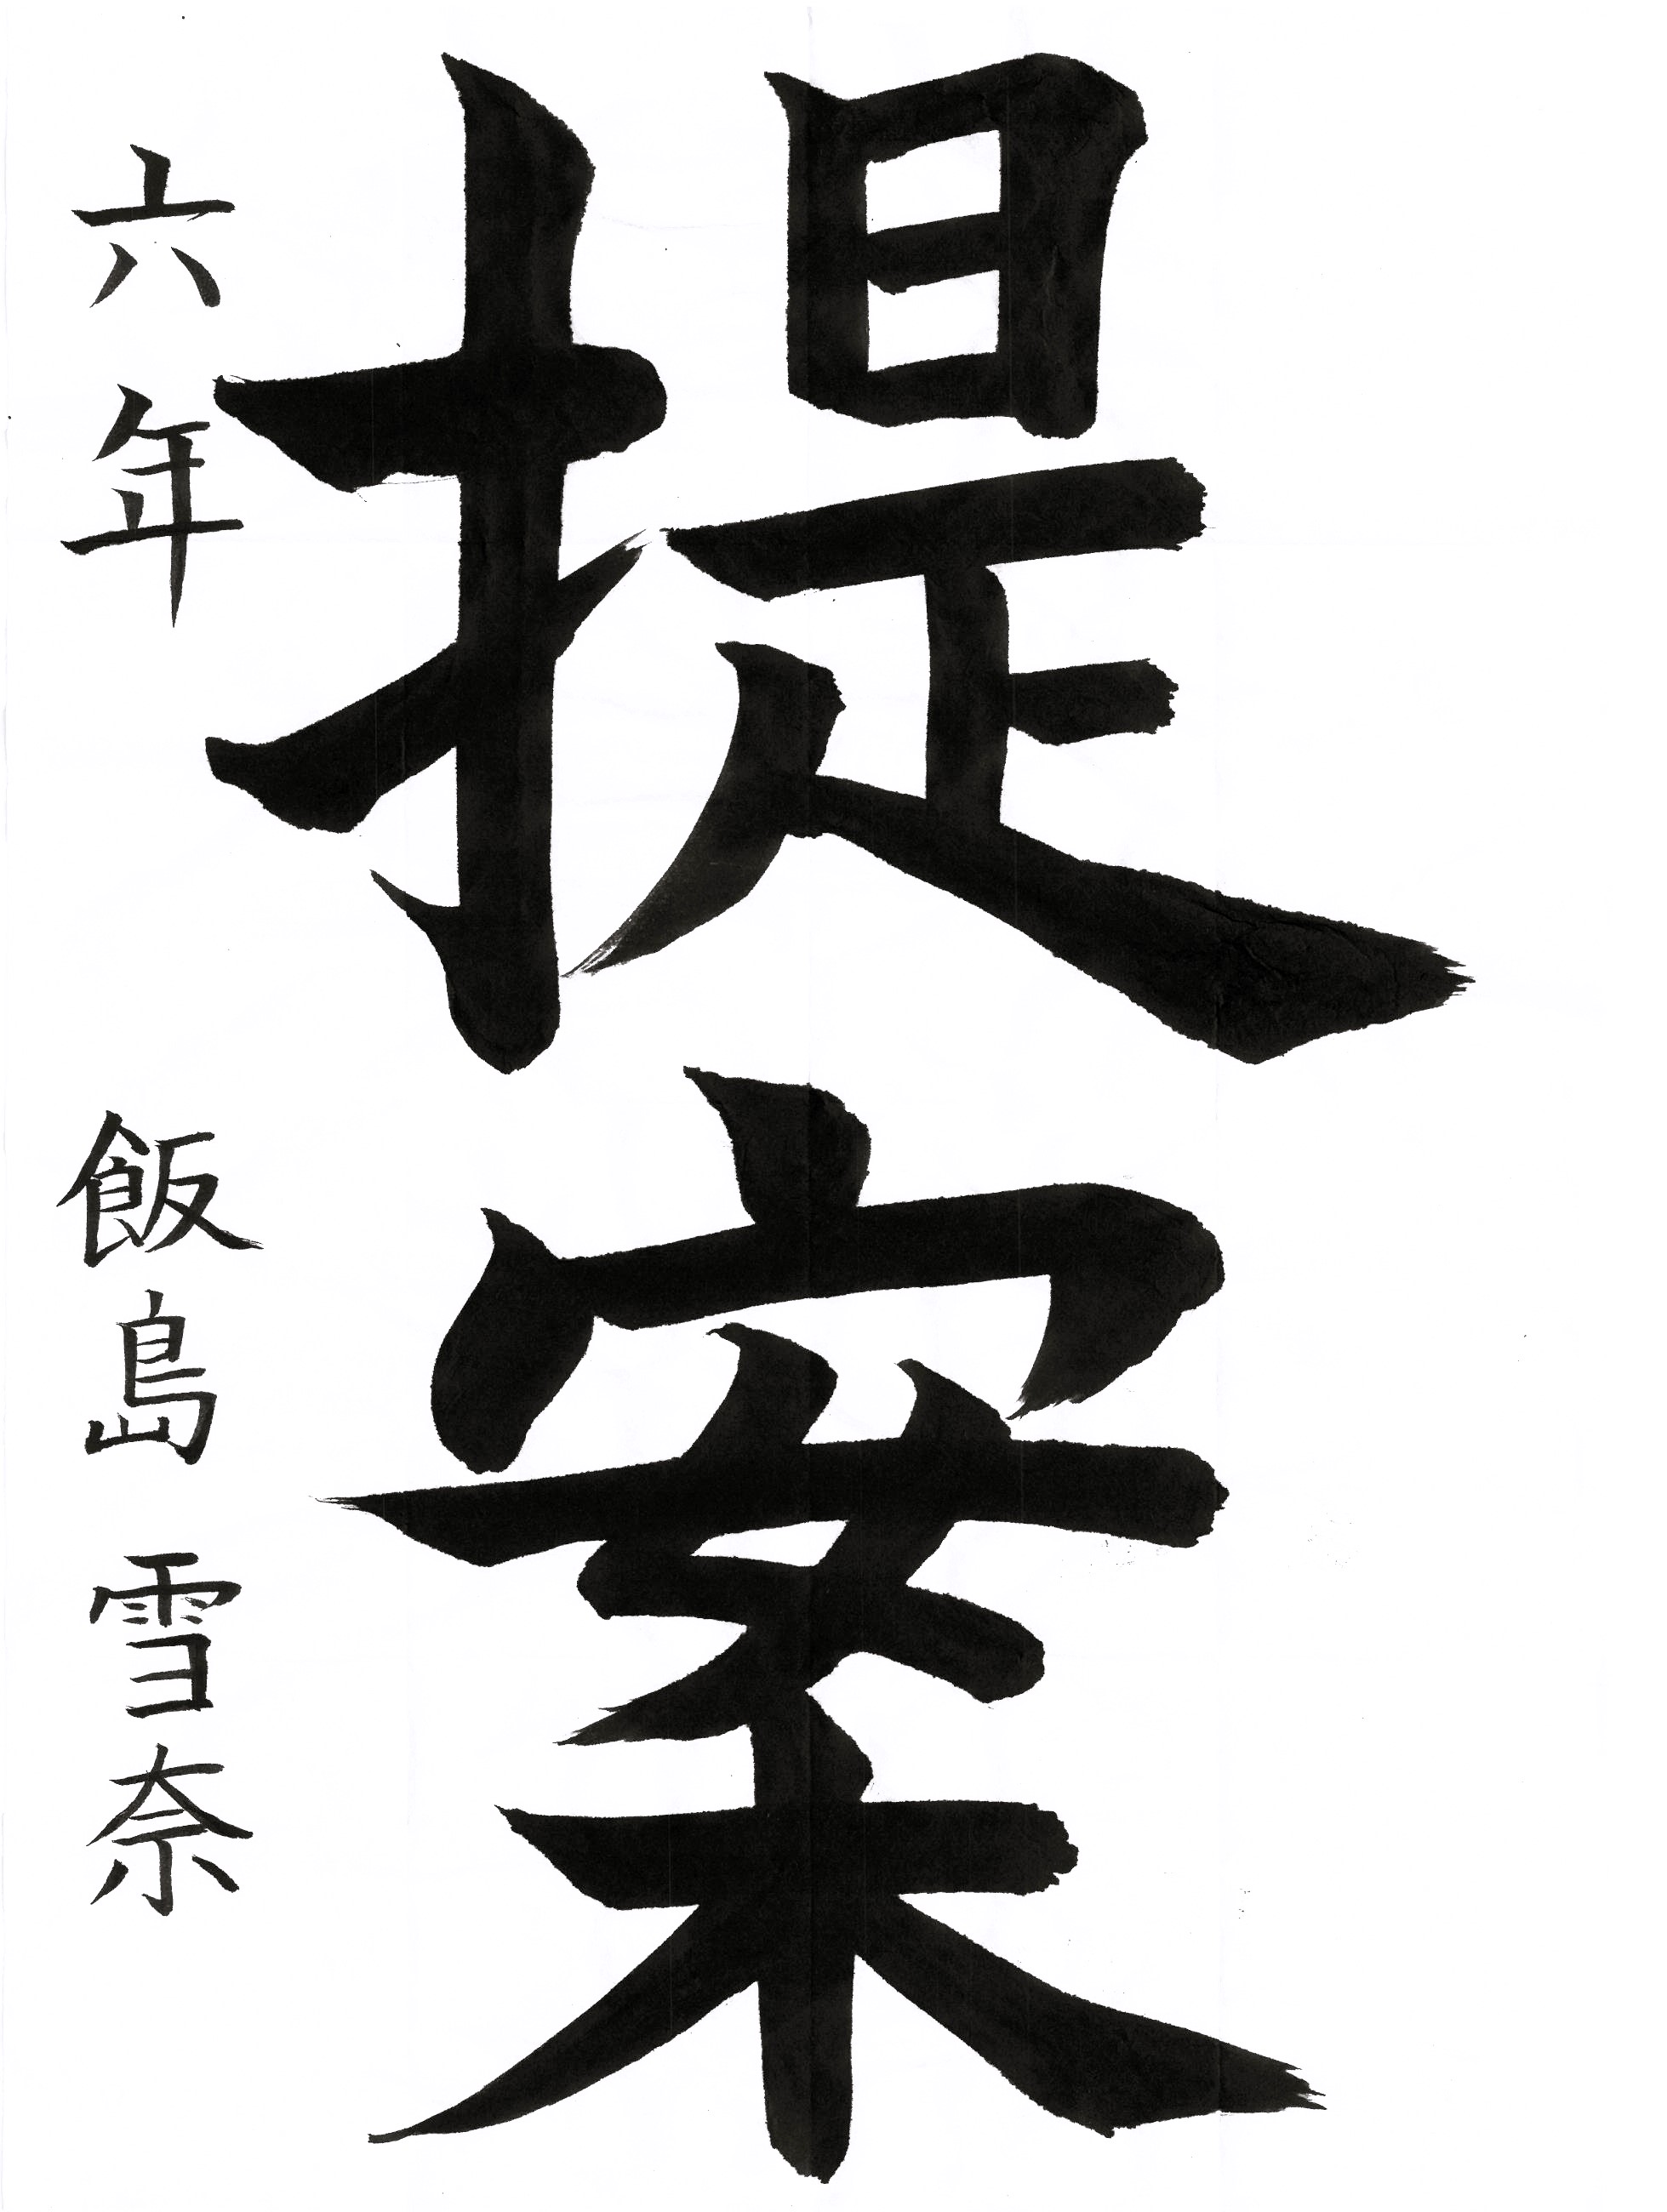 提案
六年 飯島雪奈